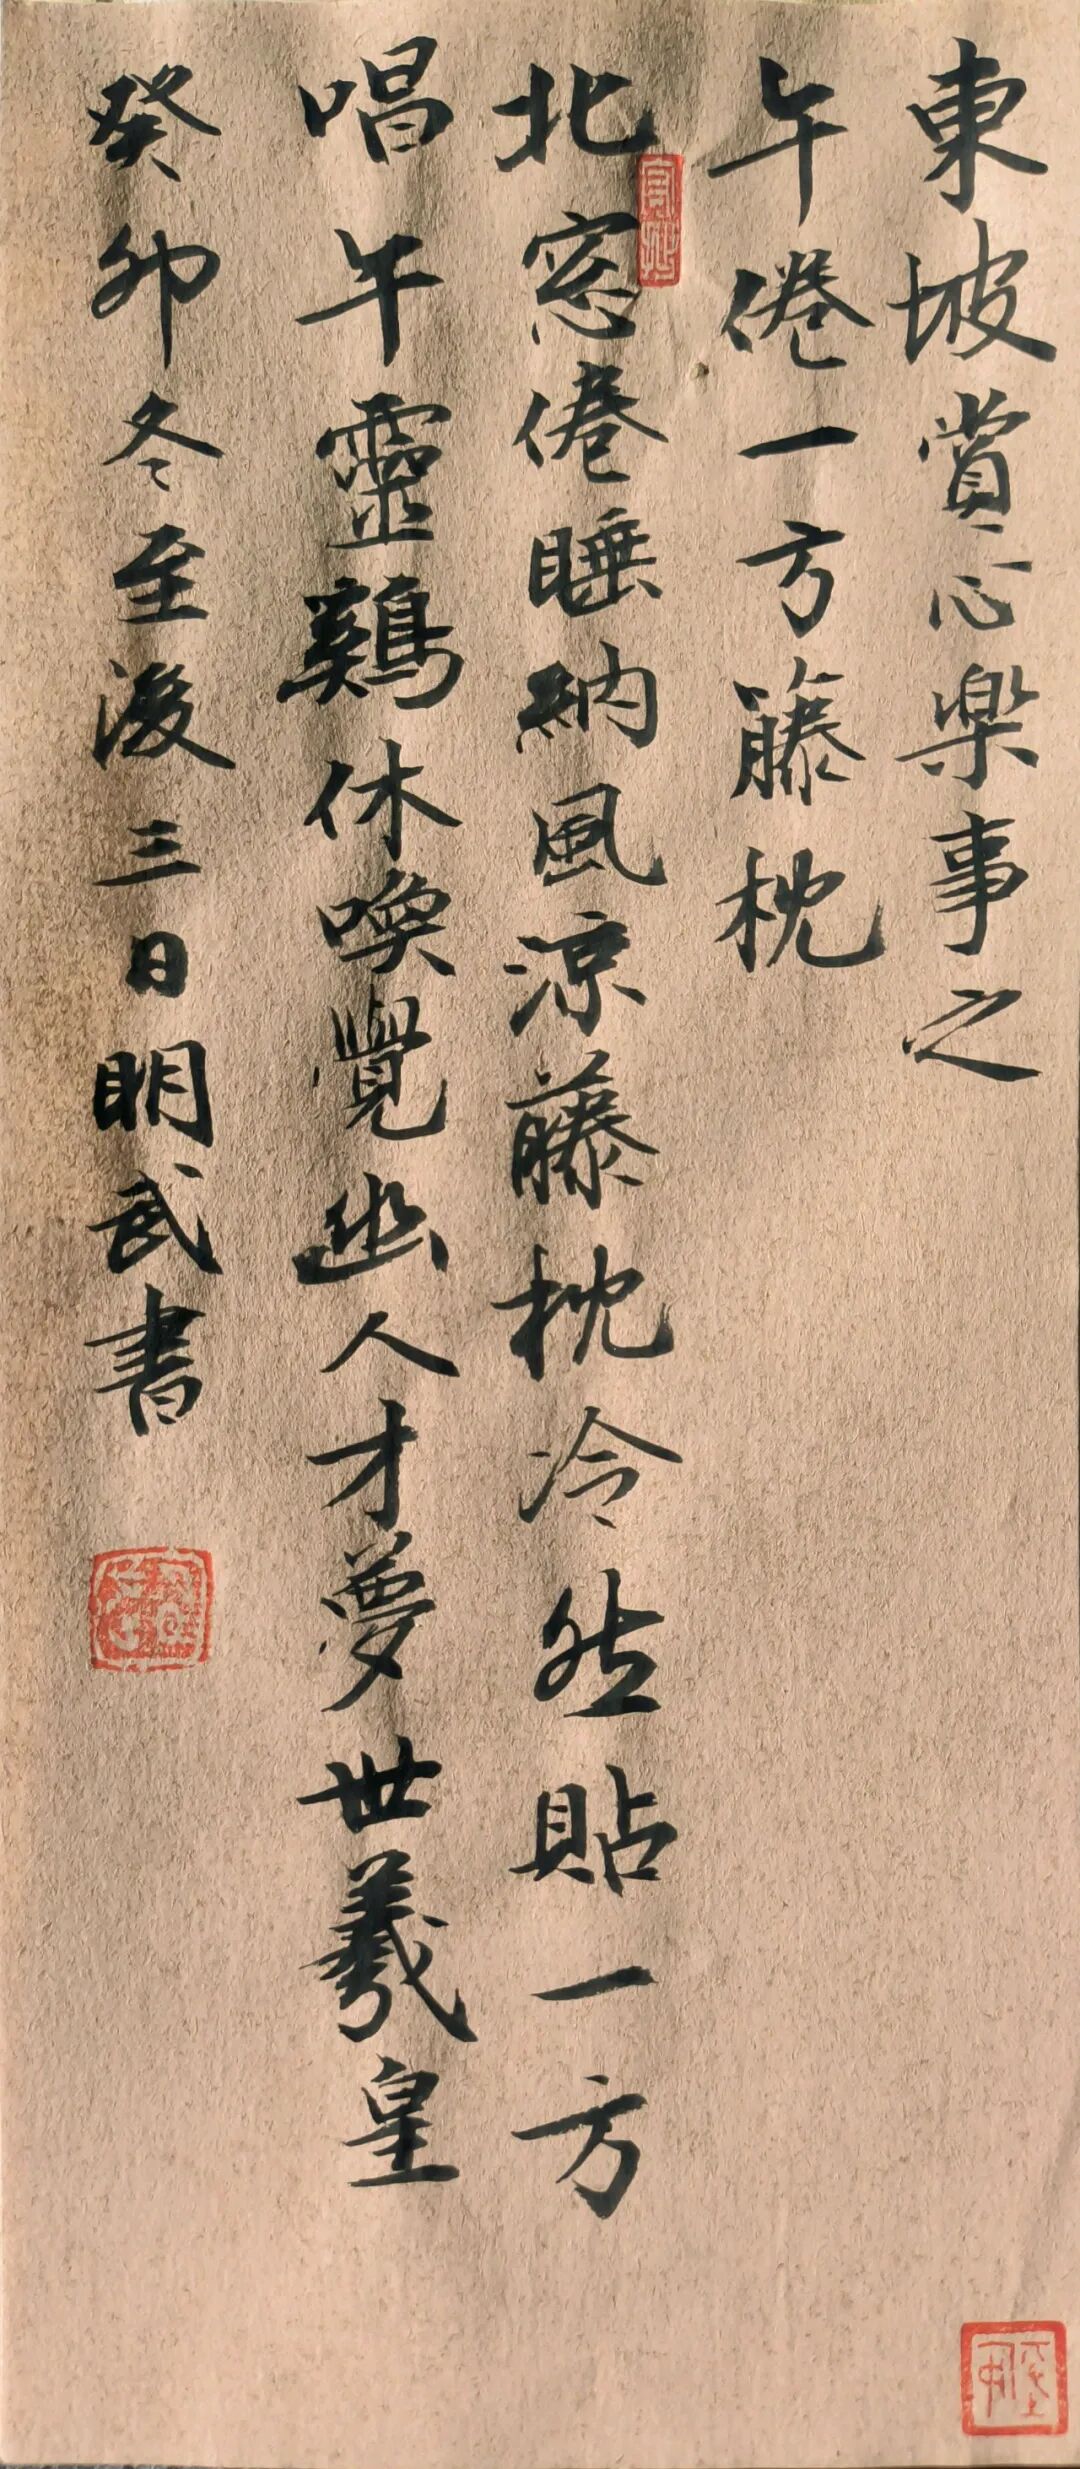 東坡賞心樂事之
午倦一方籐枕
北窓倦睡納風涼藤枕冷然貼一方
唱午靈鷄休喚覺幽人才夢世羲皇
癸卯冬至後三日明武書